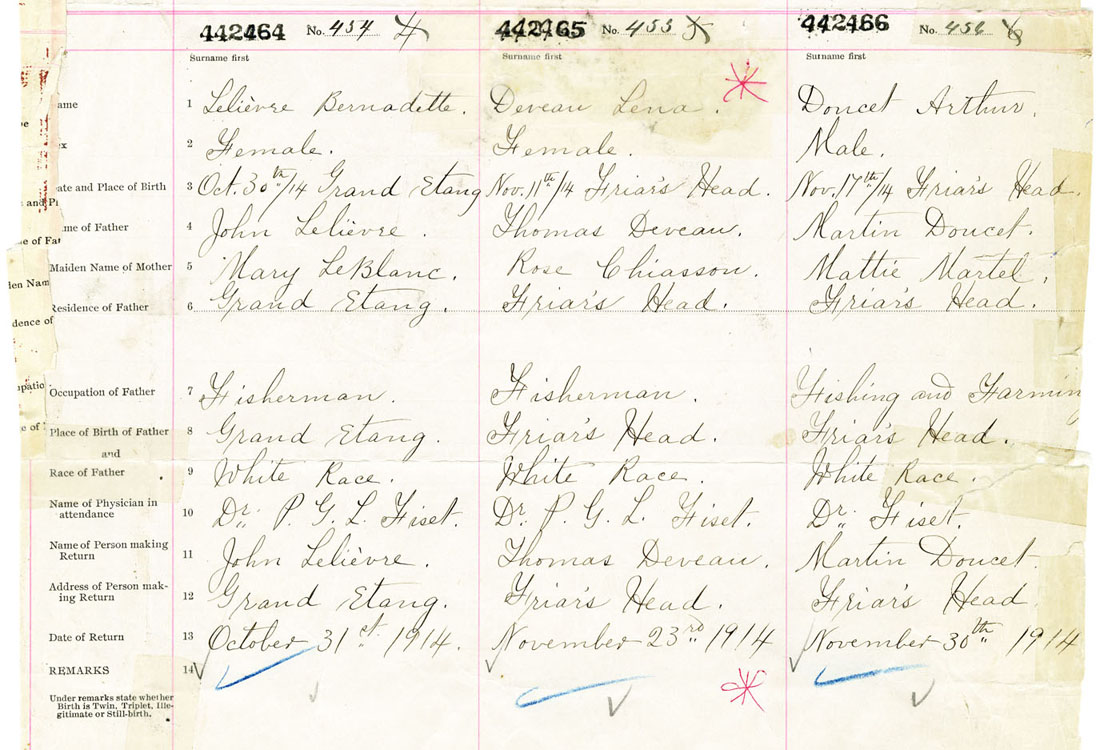 442464 No. 454 442465 No. 455 442466 No. 456
Surname first Surname first Surname first
ame 1 Lelièvre Bernadette. Deveau Lena. Doucet Arthur.
ex 2 Female. Female. Male.
ate and Place of Birth 3 Oct. 30th/14 Grand Etang Nov. 11th/14 Friar's Head. Nov. 17th/14 Friar's Head.
me of Father 4 John Lelièvre. Thomas Deveau. Martin Doucet.
Maiden Name of Mother 5 Mary LeBlanc. Rose Chiasson. Mattie Martel.
Residence of Father 6 Grand Etang. Friar's Head. Friar's Head.
Occupation of Father 7 Fisherman. Fisherman. Fishing and Farming
Place of Birth of Father 8 Grand Etang. Friar's Head. Friar's Head.
and
Race of Father 9 White Race. White Race. White Race.
Name of Physician in
attendance 10 Dr. P. G. L. Fiset. Dr. P. G. L. Fiset. Dr. Fiset.
Name of Person making
Return 11 John Lelièvre. Thomas Deveau. Martin Doucet
Address of Person mak-
ing Return 12 Grand Etang. Friar's Head. Friar's Head.
Date of Return 13 October 31st 1914. November 23rd 1914 November 30th 1914
REMARKS 14
Under remarks state whether
Birth is Twin, Triplet, Ille-
gitimate or Still-birth.